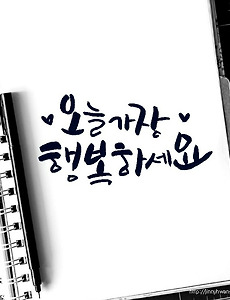 오늘 가장
행복하세요